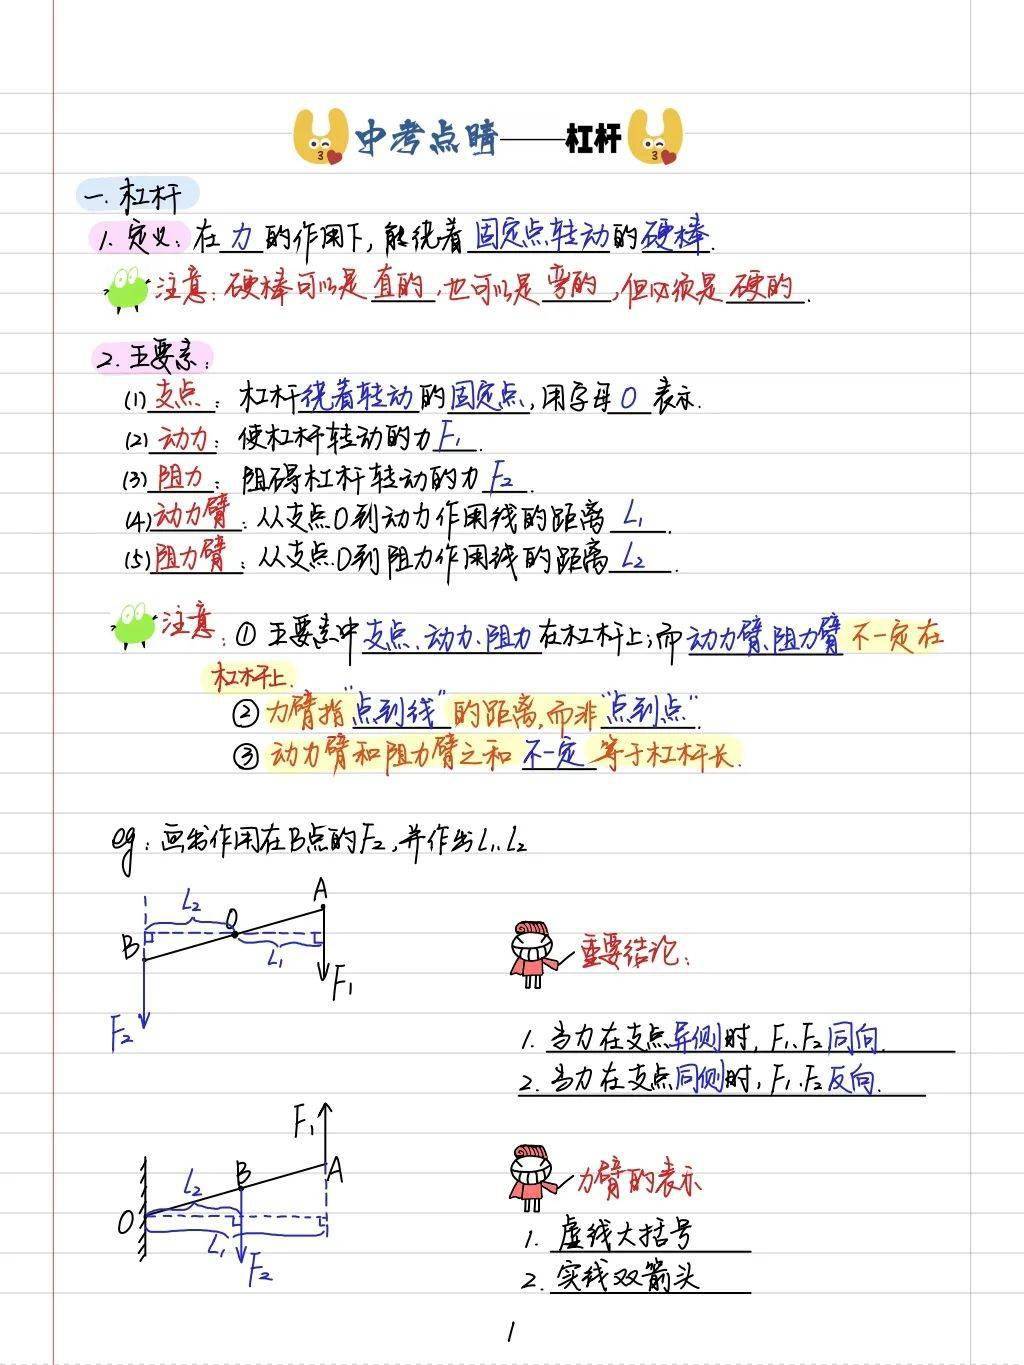 中考点睛——杠杆
一. 杠杆
1. 定义: 在 力 的作用下, 能绕着 固定点转动 的 硬棒.
注意: 硬棒可以是 直的, 也可以是 弯的, 但必须是 硬的.
2. 五要素:
(1) 支点: 杠杆绕着转动的固定点, 用字母 O 表示.
(2) 动力: 使杠杆转动的力 F₁.
(3) 阻力: 阻碍杠杆转动的力 F₂.
(4) 动力臂: 从支点O到动力作用线的距离 L₁.
(5) 阻力臂: 从支点O到阻力作用线的距离 L₂.
注意: ① 五要素中支点、动力、阻力在杠杆上; 而动力臂、阻力臂不一定在
杠杆上.
② 力臂指“点到线”的距离, 而非“点到点”.
③ 动力臂和阻力臂之和 不一定 等于杠杆长.
eg: 画出作用在B点的F₂, 并作出L₁、L₂
A
L₂
O
B
L₁
F₁
F₂
重要结论:
1. 当力在支点异侧时, F₁、F₂同向.
2. 当力在支点同侧时, F₁、F₂反向.
F₁
B
A
L₂
O
L₁
F₂
力臂的表示
1. 虚线大括号
2. 实线双箭头
1